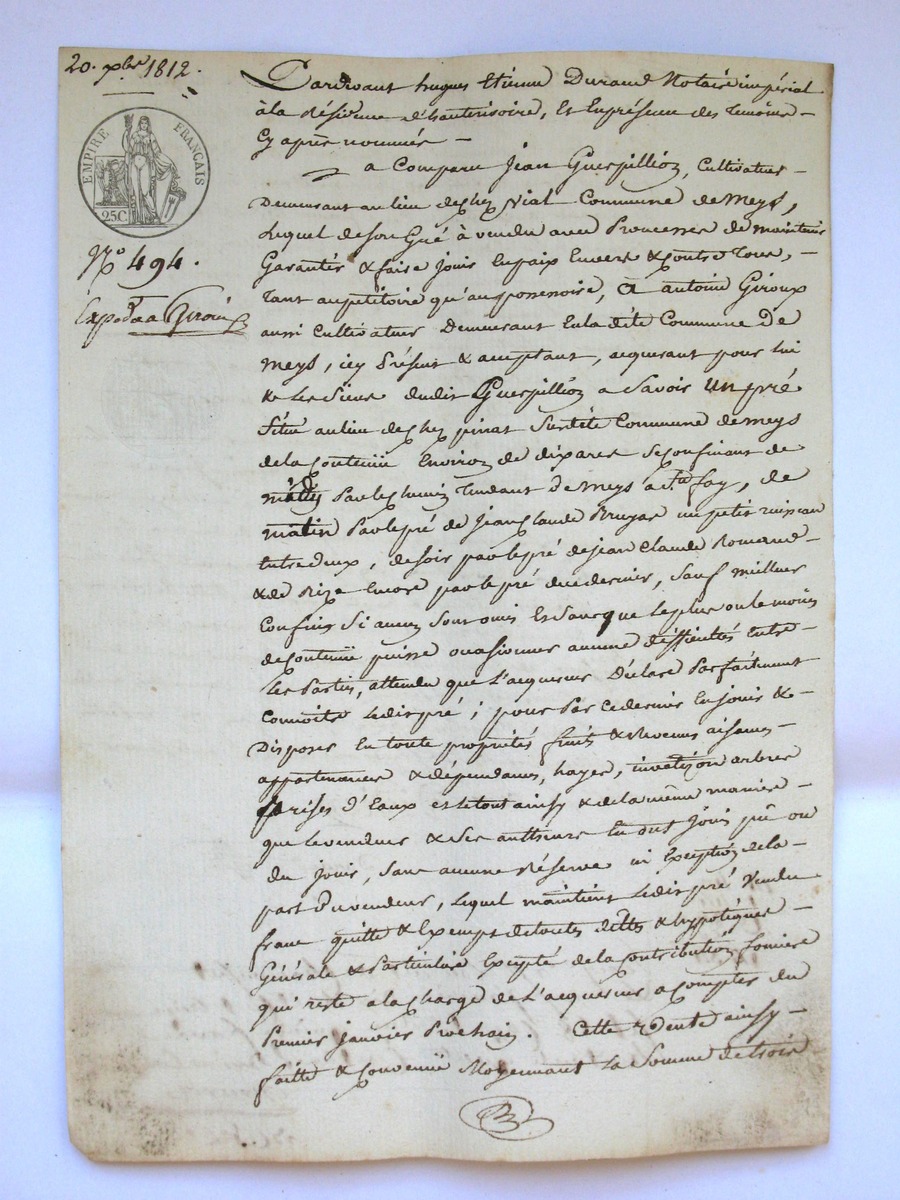 20. xbre 1812.
EMPIRE FRANÇAIS
25C
No 494.
Expd. a Giroux
Pardevant hugues Etienne Durand Notaire impérial
à la Résidence d'hauterivoire, Et En présence des Temoins
Cy après nommés
a Comparu Jean Guerpillion, Cultivateur
Demeurant au lieu de chez Vial Commune de Meys,
Lequel de son Gré à vendu avec Promesses de maintenir
Garantir & faire Jouir En paix Envers & Contre Tous,
Tant au petitoire qu'au possessoire, A antoine Giroux
aussi Cultivateur Demeurant En la dite Commune De
Meys, icy Présent & acceptant, acquerant pour lui
& Les Siens dudit Guerpillion a Savoir un pré
Situé au lieu de chez pinat Susdite Commune de Meys
de la Contenüe Environ de dix ares se Confinant de
Par le Chemin Tendant de Meys à Ste foy, de
matin Par le pré de Jean Claude Bruyas un petit ruisseau
Entre deux, de soir par le pré de jean Claude Romand
& de Bize Encore par le pré du dernier, Sauf meilleurs
Confins Si aucuns Sont omis Et Sans que Le plus ou le moins
de Contenüe puisse occasionner aucune difficultés Entre
Les Parties, attendu que L'acquereur Déclare Parfaitement
Connoitre Ledit pré; pour Par Ce dernier En Jouir &
Disposer En toute propriétés fruits & Revenus aisances
appartenances & dépendances, hayes, arbres
Prises d'Eaux et le tout ainsy & de la même maniere
que le vendeur & Ses autheurs En ont Joui pû ou
du Jouir, Sans aucune Réserve ni Exception de la
part Du vendeur, Lequel maintient Ledit pré Vendu
franc quitte & Exempt de toutes dettes & hypotèques
Générale & Particulière Excepté de la Contribution fonciere
qui reste a la Charge de L'acquereur a Compter du
Premier janvier Prochain. Cette Vente ainsy
faitte & Convenüe Moyennant La Somme de trois